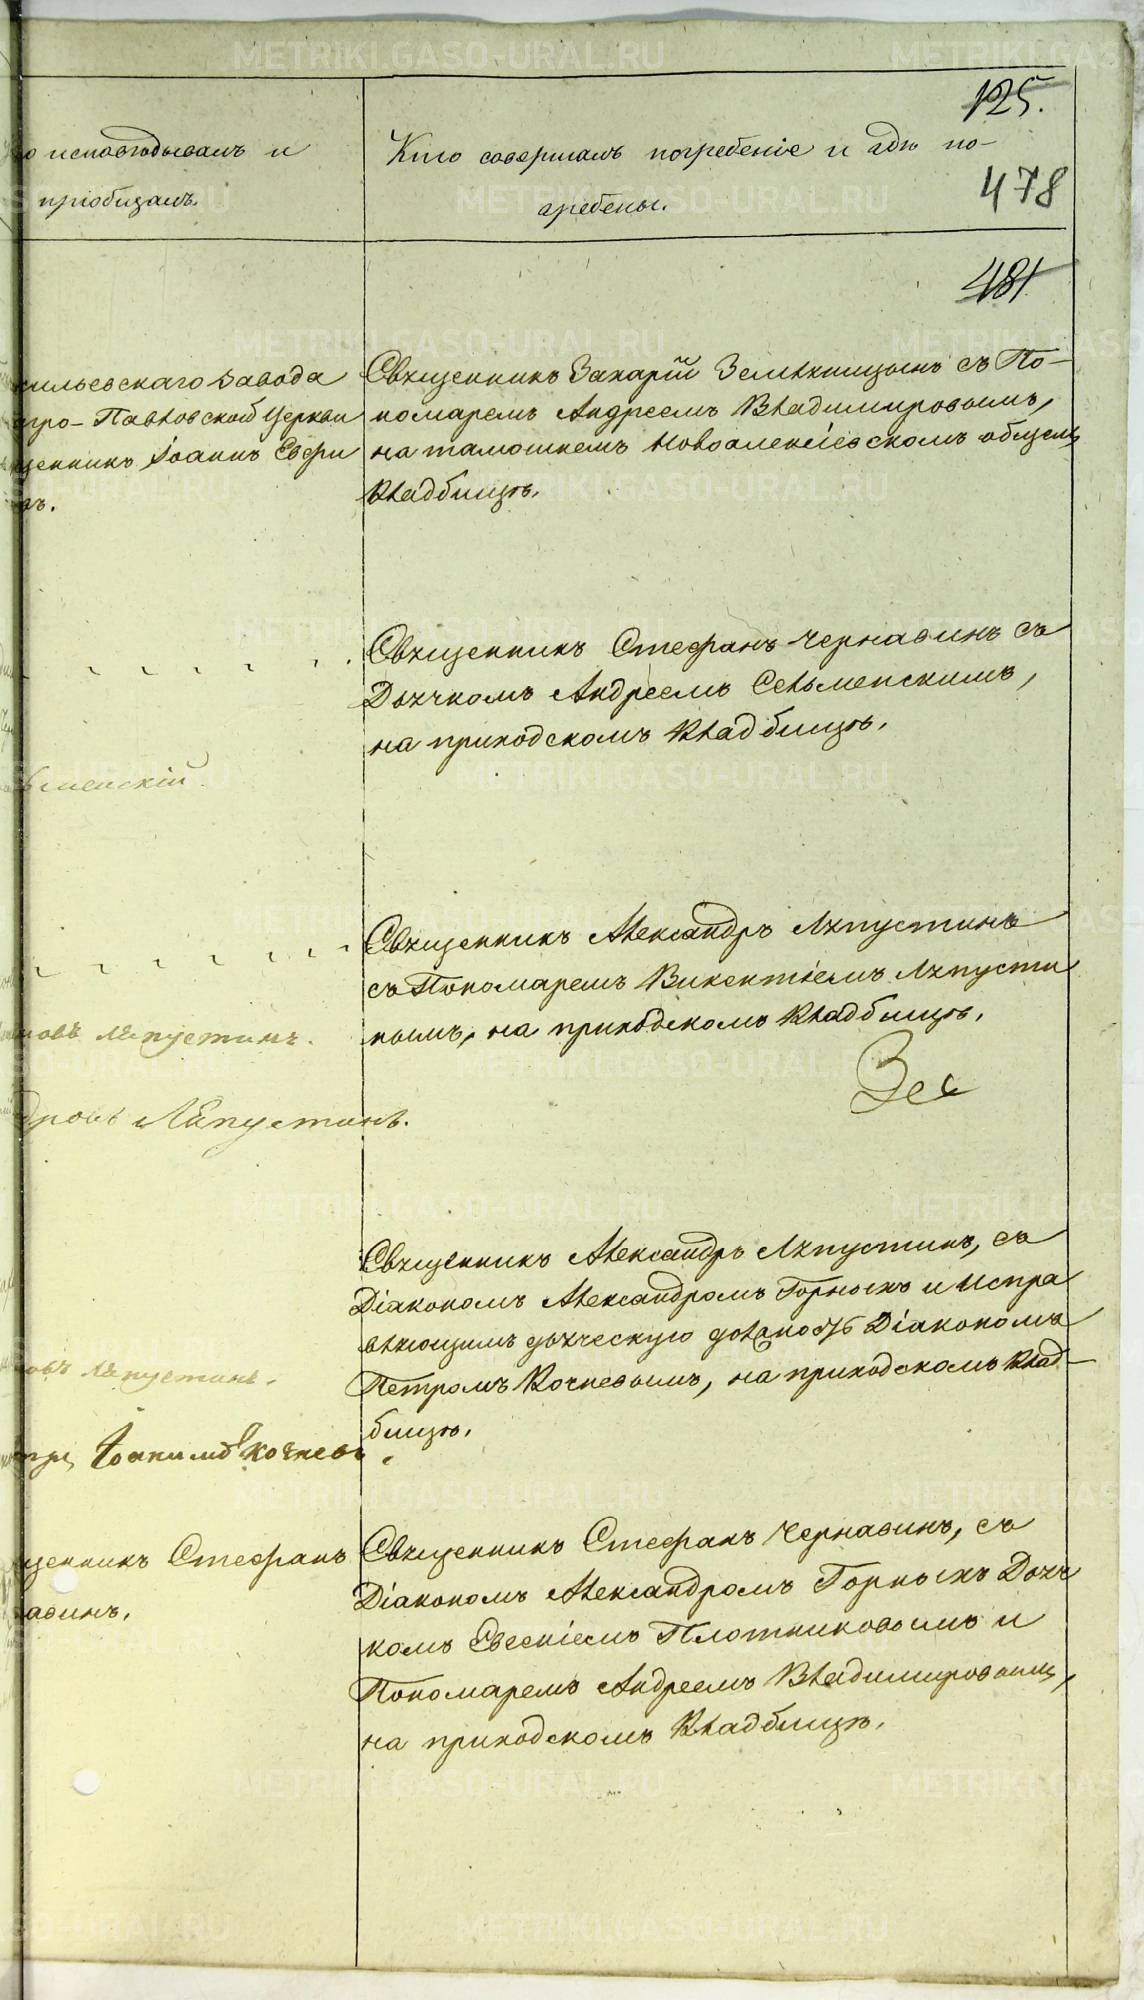 125.
о исповѣдывалъ и
пріобщалъ.
Кто совершалъ погребеніе и гдѣ по-
гребены.
478
481
сильевскаго завода
тро-Павловской Церкви
щенникъ Іоаннъ
въ.
Священникъ Захарій Земляницынъ съ По-
номаремъ Андреемъ Владимировымъ,
на тамошнемъ Новоалексѣевскомъ общемъ
кладбищѣ.
Священникъ Стефанъ Чернавинъ съ
Дьячкомъ Андреемъ Сельменскимъ,
на приходскомъ кладбищѣ.
ьменскій.
Священникъ Александръ Ляпустинъ
съ Пономаремъ Викентіемъ Ляпусти
нымъ, на приходскомъ кладбищѣ.
новъ Ляпустинъ.
дровъ Ляпустинъ.
Священникъ Александръ Ляпустинъ, съ
Діакономъ Александромъ Горныхъ и испра
вляющимъ дьяческую должность Діакономъ
Петромъ Кочневымъ, на приходскомъ клад-
бищѣ.
овъ Ляпустинъ.
Іоакимовъ Кочневъ
щенникъ Стефанъ
авинъ.
Священникъ Стефанъ Чернавинъ, съ
Діакономъ Александромъ Горныхъ Дьяч
комъ Евсевіемъ Плотниковымъ и
Пономаремъ Андреемъ Владимировымъ,
на приходскомъ кладбищѣ.
METRIKI.GASO-URAL.RU